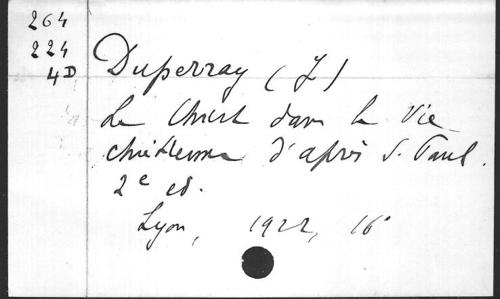 264
224
4D
Duperray (J)
Le Christ dans la Vie
chrétienne d'après S. Paul.
2e ed.
Lyon, 1922, 16°